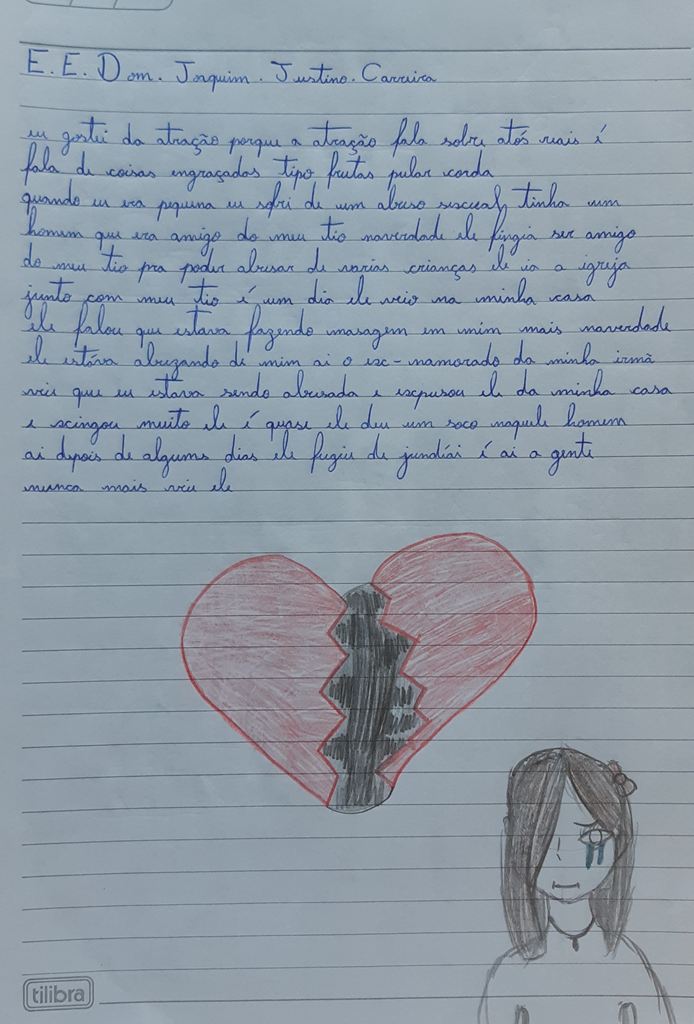 E. E. Dom. Joaquim. Justino. Carreira
eu gostei da atração porque a atração fala sobre atós reais i
fala de coisas engraçadas tipo frutas pular corda
quando eu era pequena eu sofri de um abuso sexcual, tinha um
homem que era amigo do meu tio naverdade ele fingia ser amigo
do meu tio pra poder abusar de varias crianças ele ia a igreja
junto com meu tio é um dia ele veio na minha casa
ele falou que estava fazendo masagem em mim mais naverdade
ele estáva abuzando de mim ai o exc-namorado da minha irmã
viu que eu estava sendo abusada e excpusou ele da minha casa
e scingou muito ele é quase ele deu um soco naquele homem
ai depois de algums dias ele fugiu de jundíai i ai a gente
nunca mais viu ele
tilibra